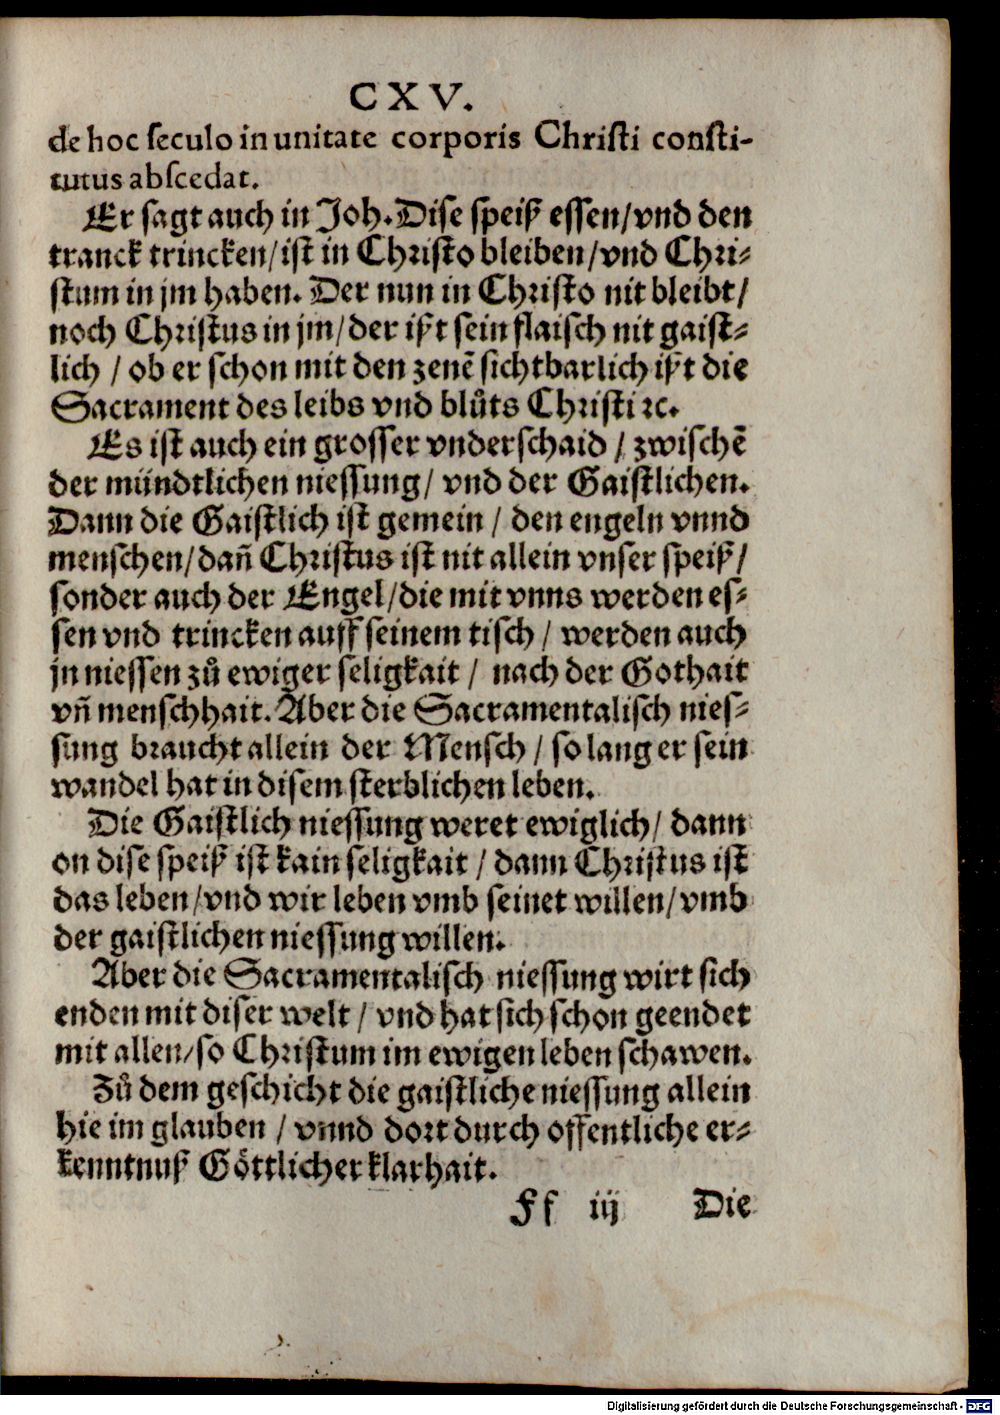 CXV.
de hoc seculo in unitate corporis Christi consti-
tutus abscedat.
Er sagt auch in Joh. Dise speiß essen/vnd den
tranck trincken/ist in Christo bleiben/vnd Chri-
stum in jm haben. Der nun in Christo nit bleibt/
noch Christus in jm/der ißt sein flaisch nit gaist-
lich / ob er schon mit den zenē sichtbarlich ißt die
Sacrament des leibs vnd blůts Christi ꝛc.
Es ist auch ein grosser vnderschaid / zwischē
der mündtlichen niessung/ vnd der Gaistlichen.
Dann die Gaistlich ist gemein / den engeln vnnd
menschen/dañ Christus ist nit allein vnser speiß/
sonder auch der Engel/die mit vnns werden es-
sen vnd trincken auff seinem tisch / werden auch
jn niessen zů ewiger seligkait / nach der Gothait
vñ menschhait. Aber die Sacramentalisch nies-
sung braucht allein der Mensch / so lang er sein
wandel hat in disem sterblichen leben.
Die Gaistlich niessung weret ewiglich/ dann
on dise speiß ist kain seligkait / dann Christus ist
das leben/vnd wir leben vmb seinet willen/vmb
der gaistlichen niessung willen.
Aber die Sacramentalisch niessung wirt sich
enden mit diser welt / vnd hat sich schon geendet
mit allen/so Christum im ewigen leben schawen.
Zů dem geschicht die gaistliche niessung allein
hie im glauben / vnnd dort durch offentliche er-
kenntnuß Göttlicher klarhait.
Ff iij Die
Digitalisierung gefördert durch die Deutsche Forschungsgemeinschaft - DFG